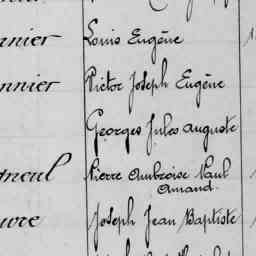 anier Louis Eugène
nnier Victor Joseph Eugène
Georges Jules Auguste
gneul Pierre Ambroise Paul
Amand
uvre Joseph Jean Baptiste